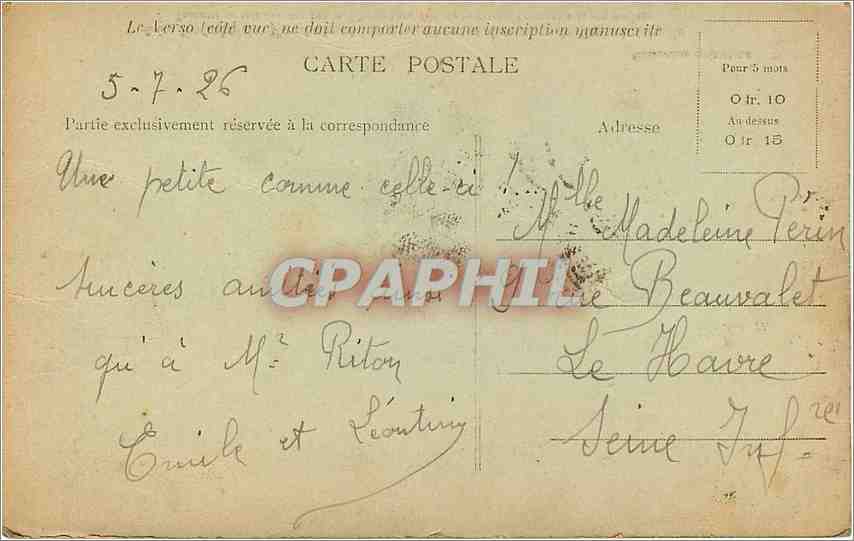 Le Verso (côté vue) ne doit comporter aucune inscription manuscrite
CARTE POSTALE
5-7-26
Partie exclusivement réservée à la correspondance
Une petite comme celle-ci !...
sincères amitiés
qu'à Mr Riton
Emile et Léontine
Adresse
Pour 5 mots
0 fr. 10
Au dessus
0 fr 15
Mlle Madeleine Périn
Rue Beauvalet
Le Havre
Seine Infre
CPAPHIL